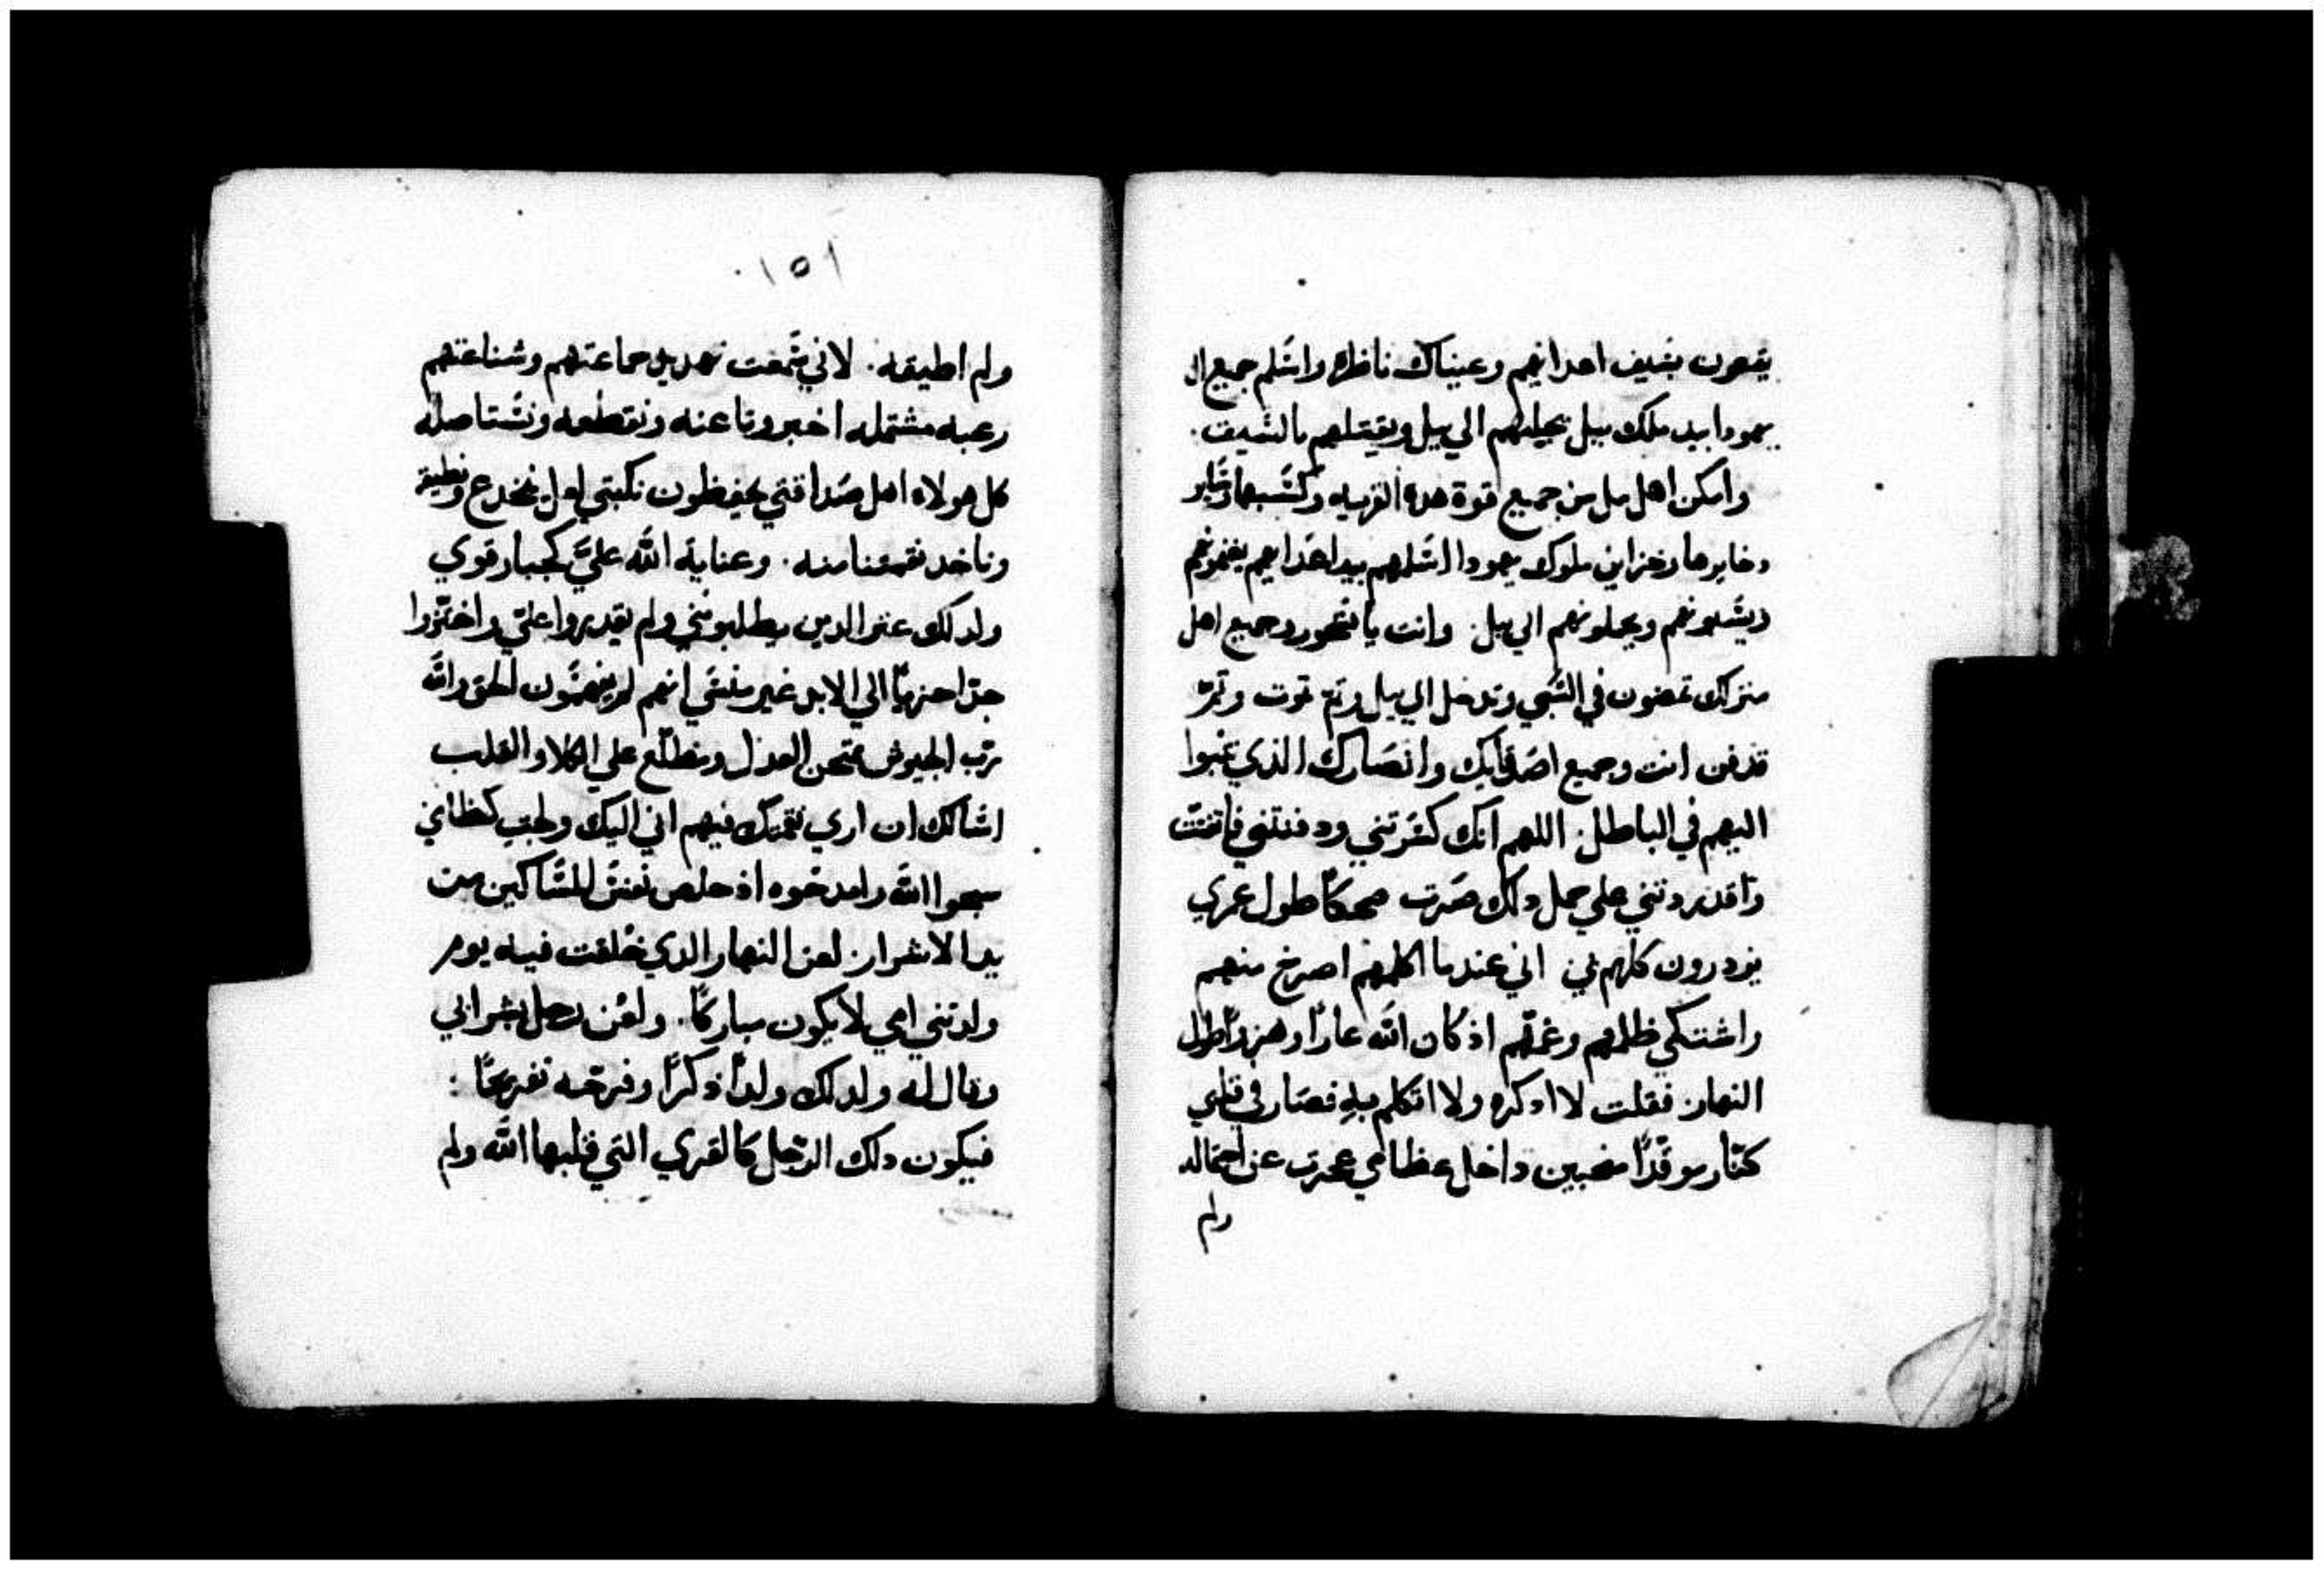 يقعون بسيف اعدايهم وعيناك ناظره واسلم جميع ال
يهودا بيد ملك بيل يجليهم الي بيل ويقتلهم بالسيف.
وامكن اهل بيل من جميع قوة هده القريه وكسبها وساير
دخايرها وخزاين ملوك يهودا اسلمهم بيد اعدايهم يغنمونهم
ويسبونهم ويحملونهم الي بيل. وانت يا فسحور وجميع اهل
منزلك تمضون في السبي وتدخل الي بيل وتم توت وتم
تدفن انت وجميع اصدقايك وانصارك الذي تنبوا
اليهم في الباطل. اللهم انك كسرتني ودفنتني فاتفتت
واقدرتني علي حمل دلك صرت ضحكاً طول عمري
يزدرون كلهم بي اني عندما اكلمهم اصرخ منهم
واشتكي ظلمهم وغمهم اذ كان الله عاراً وهزواً طول
النهار. فقلت لا ادكره ولا اتكلم به فصار في قلبي
كنار موقداً داخل عظامي عجزت عن احتماله
ولم
١٥١
ولم اطيقه. لاني سمعت تهديل جماعتهم وشناعتهم
رعبه مشتمله اخبرونا عنه ونقطعه ونستاصله
كل هولاه اهل صداقتي يحفظون نكبتي لعل نخدع
وناخد نقمتنا منه. وعناية الله عليّ كجبار قوي
ولدلك عتر الدين يطلبونني ولم يقدروا عليّ واختزوا
جدا حزياً الي الابد غير منسي انهم لم يفهمون الحق والله
رب الجيوش ممتحن العدل ومطلع علي الكلا والقلب
اسالك ان اري نقمتك فيهم اني اليك
سبحوا الله وامدحوه اذ خلص نفس المساكين من
يد الاشرار. لعن النهار الدي خلقت فيه يوم
ولدتني امي لا يكون مباركاً. ولعن رجل بشر ابي
وقال له ولد لك ولداً ذكراً وفرحه تفريحاً :
فيكون دلك الرجل كالقري التي قلبها الله ولم